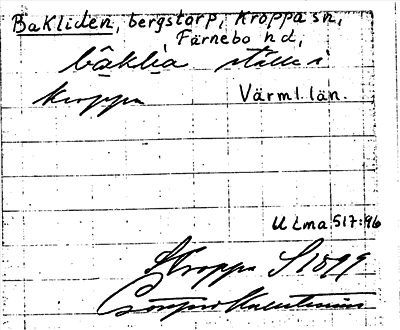 Bakliden, bergstorp, Kroppa sn,
Färnebo hd,
bâklia ställe i
Kroppa Värml. län.
ULma 517:96
Kroppa S 1899